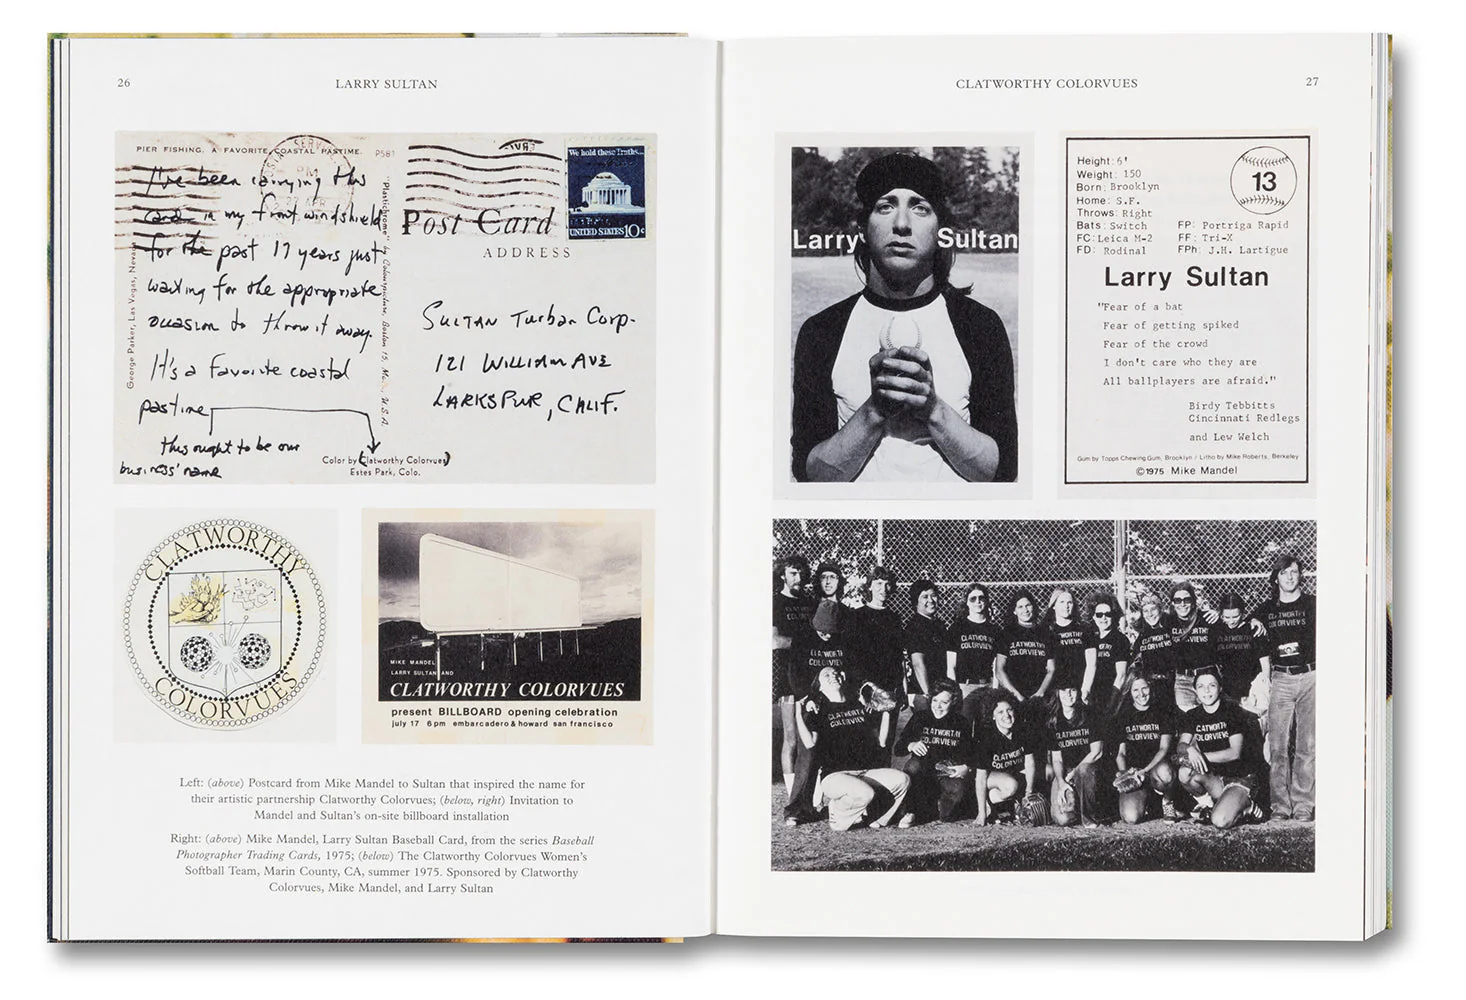 26
LARRY SULTAN
PIER FISHING. A FAVORITE COASTAL PASTIME.
P581
I've been carrying this
card in my front windshield
for the past 17 years just
waiting for the appropriate
occasion to throw it away.
It's a favorite coastal
pastime
this ought to be our
business' name
George Parker, Las Vegas, Nevada
"Plastichrome" by Colourpicture, Boston 15, Mass., U.S.A.
Color by (Clatworthy Colorvues)
Estes Park, Colo.
Post Card
ADDRESS
We hold these Truths...
UNITED STATES 10c
SULTAN Turban Corp.
121 WILLIAM AVE
LARKSPUR, CALIF.
CLATWORTHY
COLORVUES
MIKE MANDEL
LARRY SULTAN AND
CLATWORTHY COLORVUES
present BILLBOARD opening celebration
july 17 6pm embarcadero & howard san francisco
Left: (above) Postcard from Mike Mandel to Sultan that inspired the name for
their artistic partnership Clatworthy Colorvues; (below, right) Invitation to
Mandel and Sultan's on-site billboard installation
Right: (above) Mike Mandel, Larry Sultan Baseball Card, from the series Baseball
Photographer Trading Cards, 1975; (below) The Clatworthy Colorvues Women's
Softball Team, Marin County, CA, summer 1975. Sponsored by Clatworthy
Colorvues, Mike Mandel, and Larry Sultan
CLATWORTHY COLORVUES
27
Larry Sultan
Height: 6'
Weight: 150
Born: Brooklyn
Home: S.F.
Throws: Right
Bats: Switch
FC: Leica M-2
FD: Rodinal
13
FP: Portriga Rapid
FF: Tri-X
FPh: J.H. Lartigue
Larry Sultan
"Fear of a bat
Fear of getting spiked
Fear of the crowd
I don't care who they are
All ballplayers are afraid."
Birdy Tebbitts
Cincinnati Redlegs
and Lew Welch
Gum by Topps Chewing Gum, Brooklyn / Litho by Mike Roberts, Berkeley
©1975 Mike Mandel
CLATWORTHY
COLORVIEWS